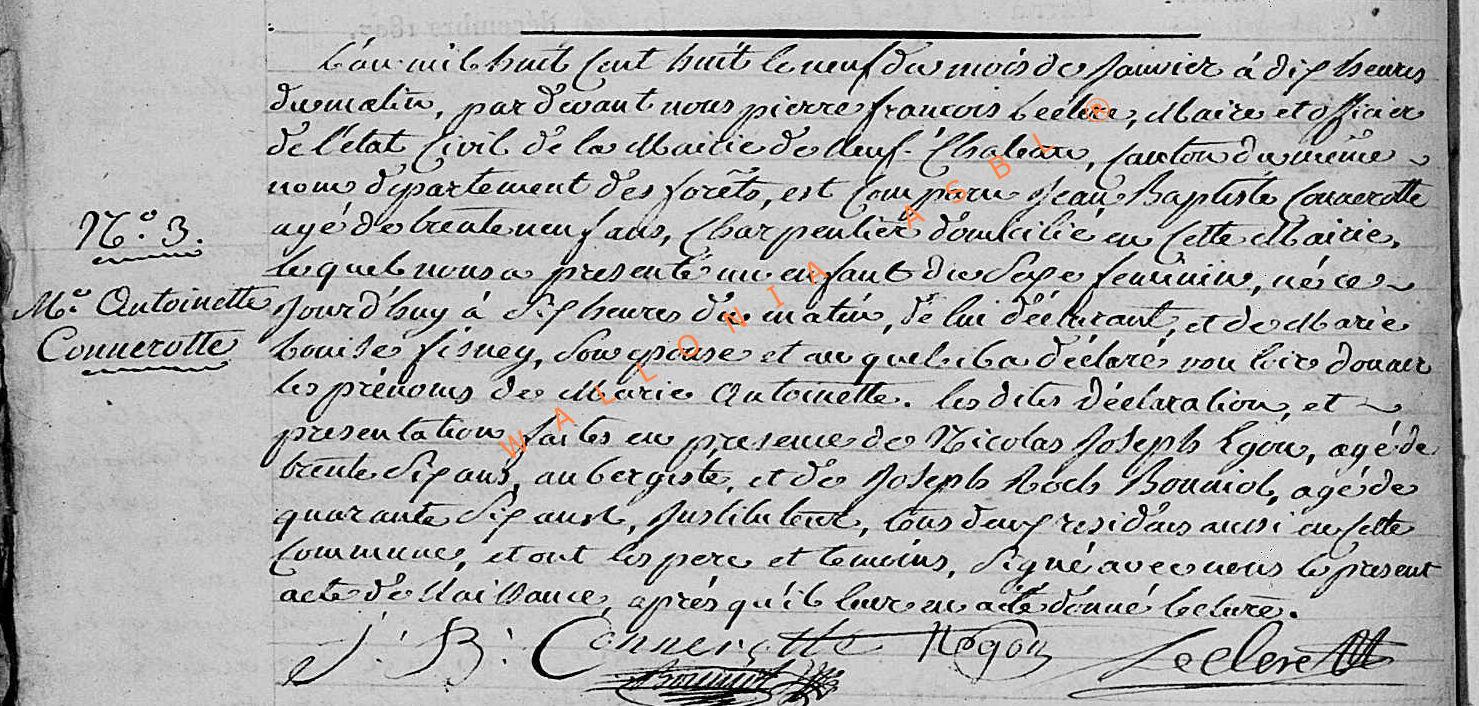 L'an mil huit Cent huit le neuf du mois de Janvier à dix heures
du matin, par devant nous pierre françois Leclere, Maire et officier
de l'état Civil de la Mairie de Neuf-Chateau, Canton du même
nom département des forêts, est Comparu Jean Baptiste Connerotte
agé de trente neuf ans, Charpentier domicilié en Cette Mairie,
N.o 3.
lequel nous a presenté un enfant du Sexe feminin, né ce
M.e Antoinette
Connerotte
jourd'huy à Six heures du matin, de lui déclarant, et de Marie
Louise fisney, Son epouse et au quel il a déclaré vouloir donner
les prénoms de Marie Antoinette. les dites déclaration, et
presentation faites en presence de Nicolas Joseph Egon, agé de
trente Six ans, aubergiste, et de Joseph Roch Bonniol, agé de
quarante Six ans, Instituteur, tous deux residens aussi en Cette
Commune, et ont les pere et temoins, Signé avec nous le present
acte de Naissance, après qu'il leur en a été donné lecture.
J. B. Connerotte NEgon Leclere
Bonniol
WALLONIA ASBL ®